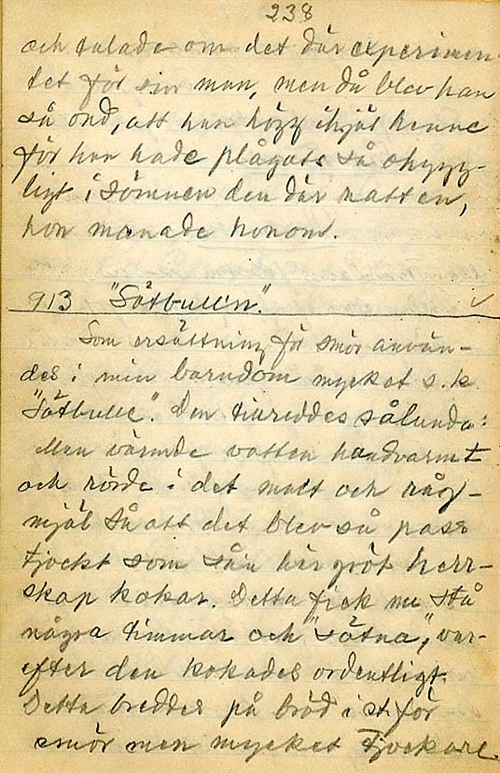 238
och talade om det där experimen-
tet för sin man, men då blev han
så ond, att han högg ihjäl henne
för han hade plågats så ohygg-
ligt i sömnen den där natten,
hon manade honom.
913 "Sötbullen".
Som ersättning för smör använ-
des i min barndom mycket s.k.
"Sötbulle". Den tillreddes sålunda:
Man värmde vatten handvarmt
och rörde i det malt och råg-
mjöl så att det blev så pass
tjockt som sån här gröt herr-
skap kokar. Detta fick nu stå
några timmar och "sötna", var-
efter den kokades ordentligt.
Detta breddes på bröd i st. för
smör men mycket tjockare.